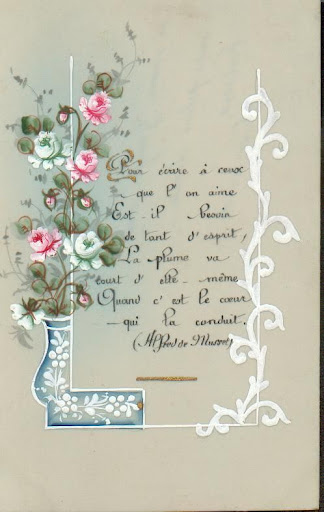 Pour écrire à ceux
- que l'on aime
Est-il besoin
de tant d'esprit,
La plume va
tout d'elle-même
Quand c'est le cœur
- qui la conduit.
(Alfred de Musset)